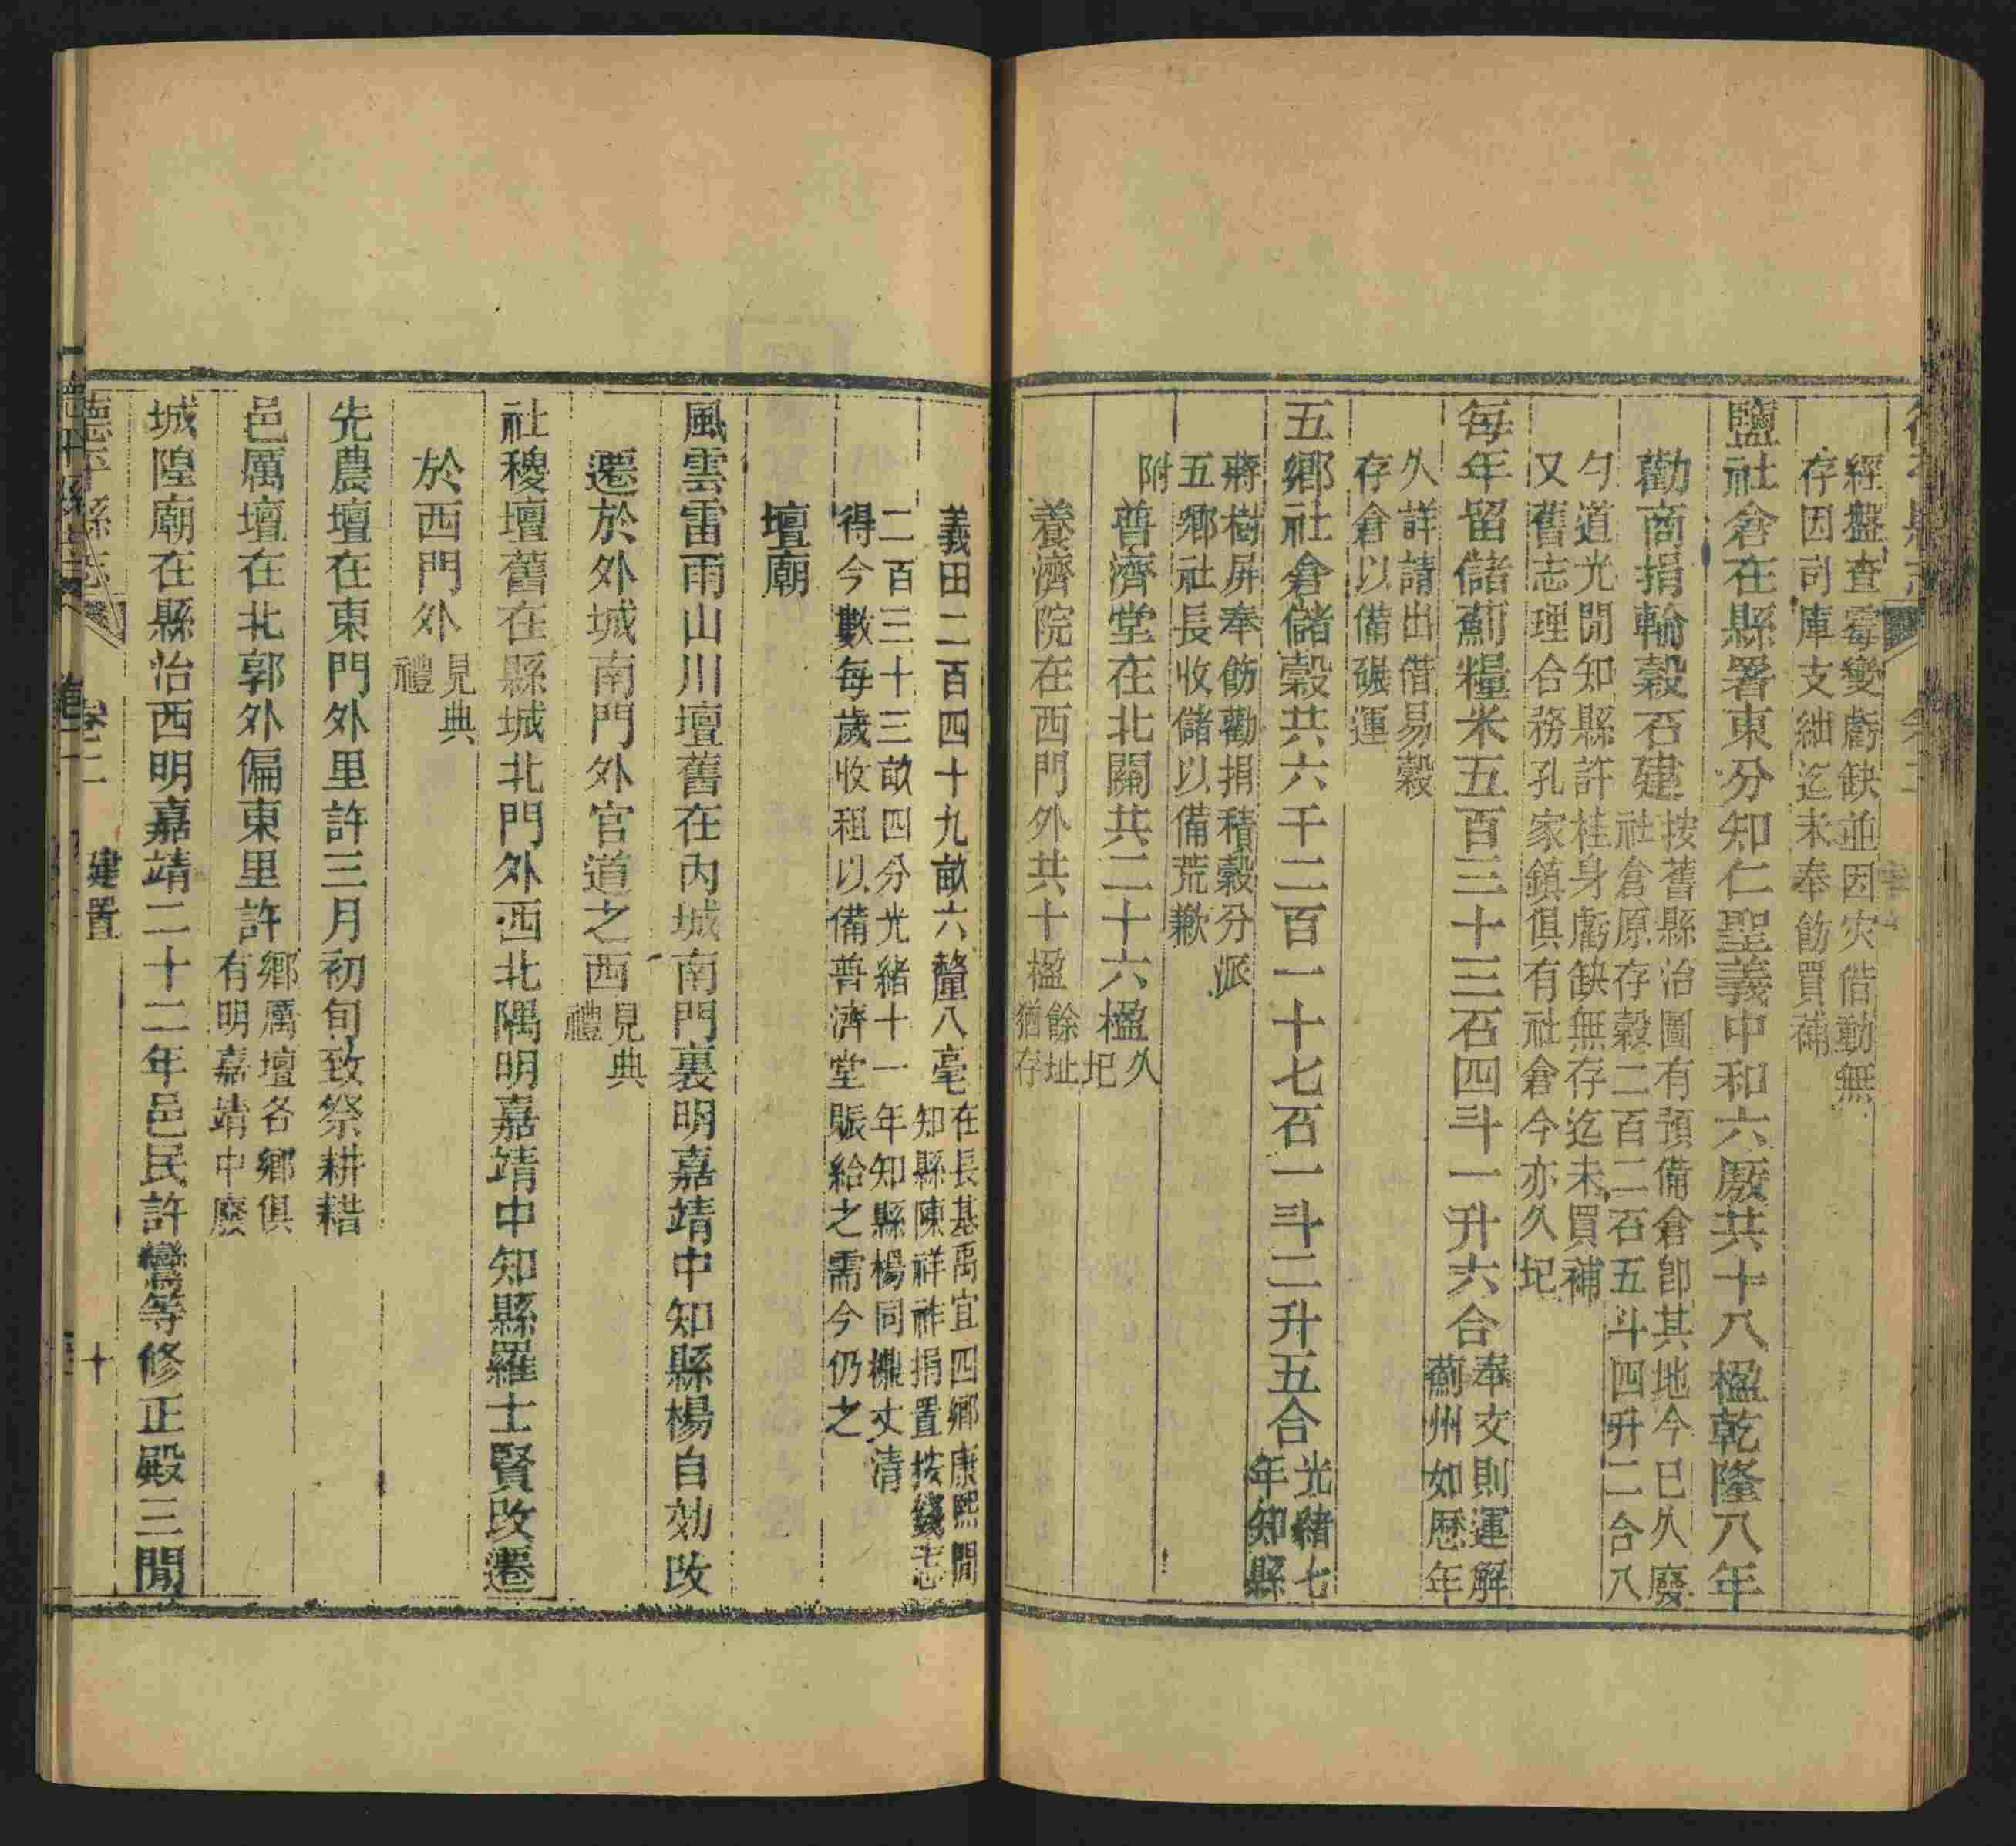 經盤查霉變虧缺並因灾借動無
存因司庫支絀迄未奉飭買補
鹽社倉在縣署東分知仁聖義中和六厫共十八楹乾隆八年
勸商捐輸穀石建按舊縣治圖有預備倉卽其地今已久廢
社倉原存穀二百二石五斗四升二合八
勺道光間知縣許桂身虧缺無存迄未買補
又舊志理合務孔家鎮俱有社倉今亦久圮
每年留儲薊糧米五百三十三石四斗一升六合奉文則運解
薊州如歷年
久詳請出借易穀
存倉以備碾運
五鄉社倉儲穀共六千二百一十七石一斗二升五合光緒七
年知縣
蔣樹屏奉飭勸捐積穀分派
五鄉社長收儲以備荒歉
附
普濟堂在北關共二十六楹久
圮
養濟院在西門外共十楹餘址
猶存
義田二百四十九畝六釐八毫在長基禹宜四鄉康熙間
知縣陳祥祚捐置按錢志
二百三十三畝四分光緒十一年知縣楊同櫆丈清
得今數每歲收租以備普濟堂賑給之需今仍之
壇廟
風雲雷雨山川壇舊在內城南門裏明嘉靖中知縣楊自効改
遷於外城南門外官道之西見典
禮
社稷壇舊在縣城北門外西北隅明嘉靖中知縣羅士賢改遷
於西門外見典
禮
先農壇在東門外里許三月初旬致祭耕耤
邑厲壇在北郭外偏東里許鄉厲壇各鄉俱
有明嘉靖中廢
城隍廟在縣治西明嘉靖二十二年邑民許鸞等修正殿三間
德平縣志 卷二 建置 十